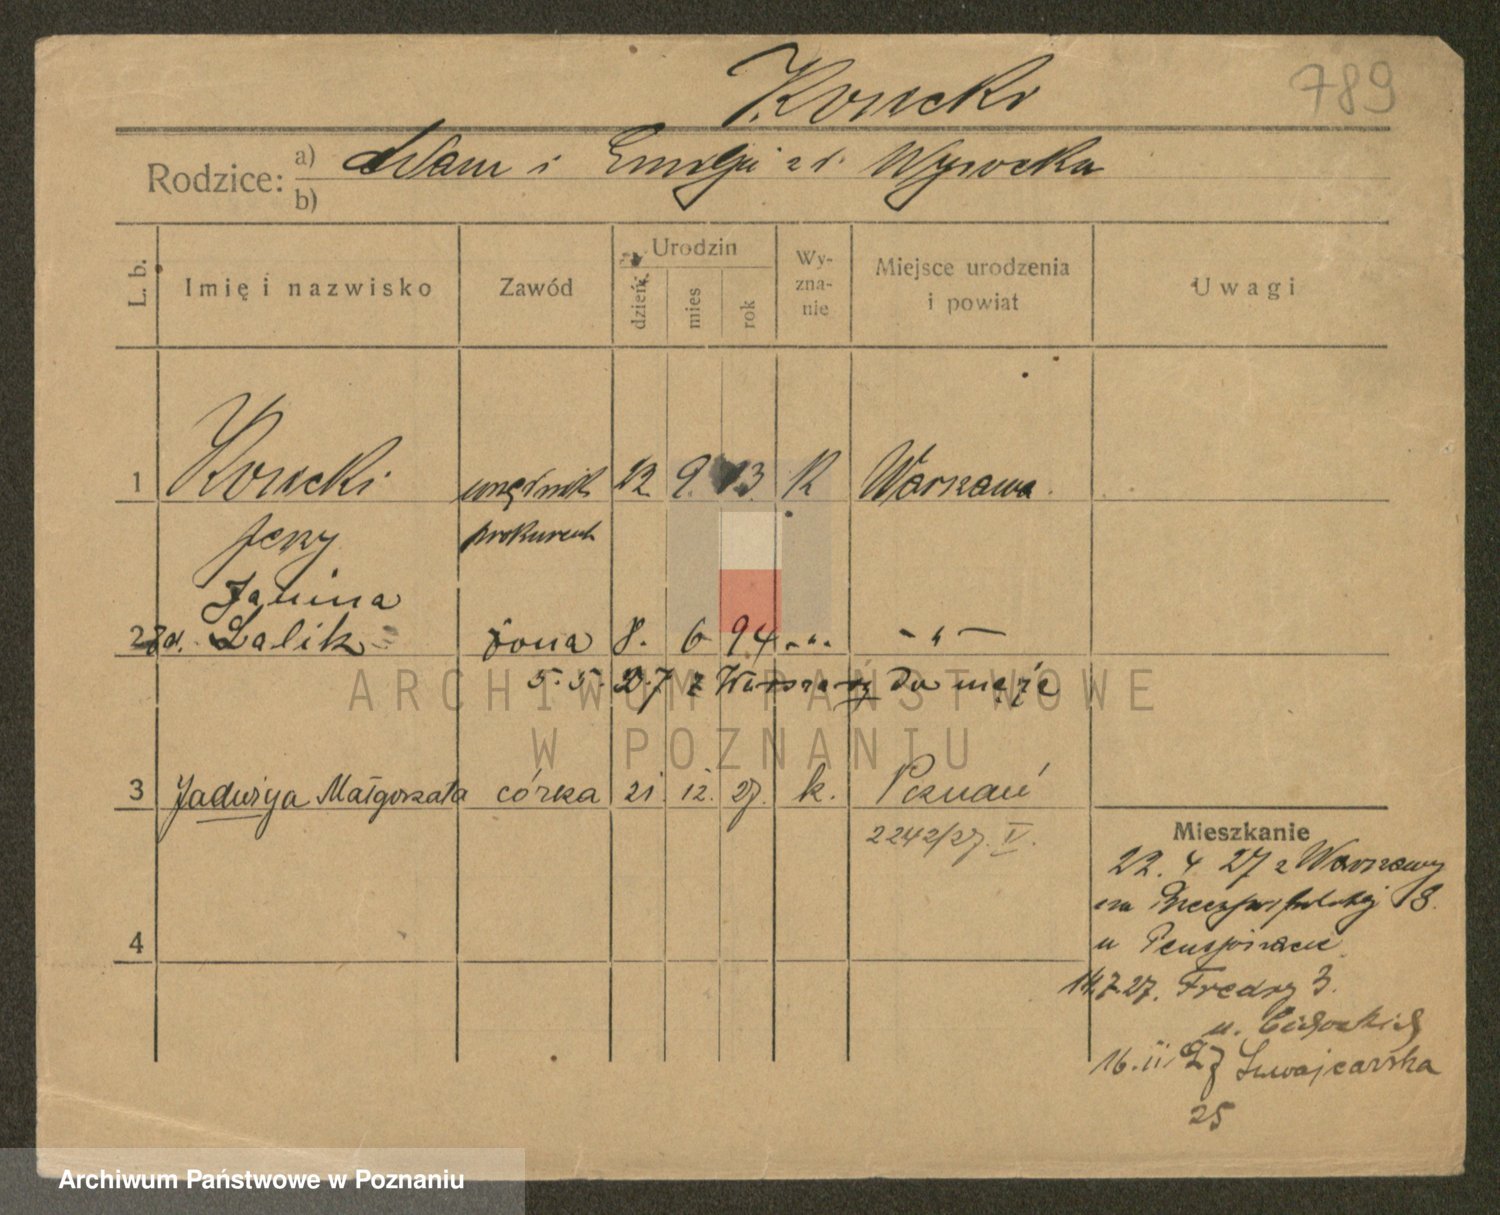 Konicki
789
Rodzice: a) Adam i Emilja z d. Wysocka
b)
L. b. Imię i nazwisko Zawód Urodzin dzień mies rok Wy-zna-nie Miejsce urodzenia i powiat Uwagi
1 Konicki urzędnik 12 9. 93 K Warszawa
Jerzy prokurent
Janina
2 zd. Zalik żona 8. 6 94 -"- -"-
5. 5. 27 z Warszawy do męża
ARCHIWUM PAŃSTWOWE
W POZNANIU
3 Jadwiga Małgorzata córka 21. 12. 27. k. Poznań
2242/27. V.
Mieszkanie
22. 4 27 z Warszawy
4
14.7.27. Fredry 3.
u.
16. 11. 27 Szwajcarska
25
Archiwum Państwowe w Poznaniu